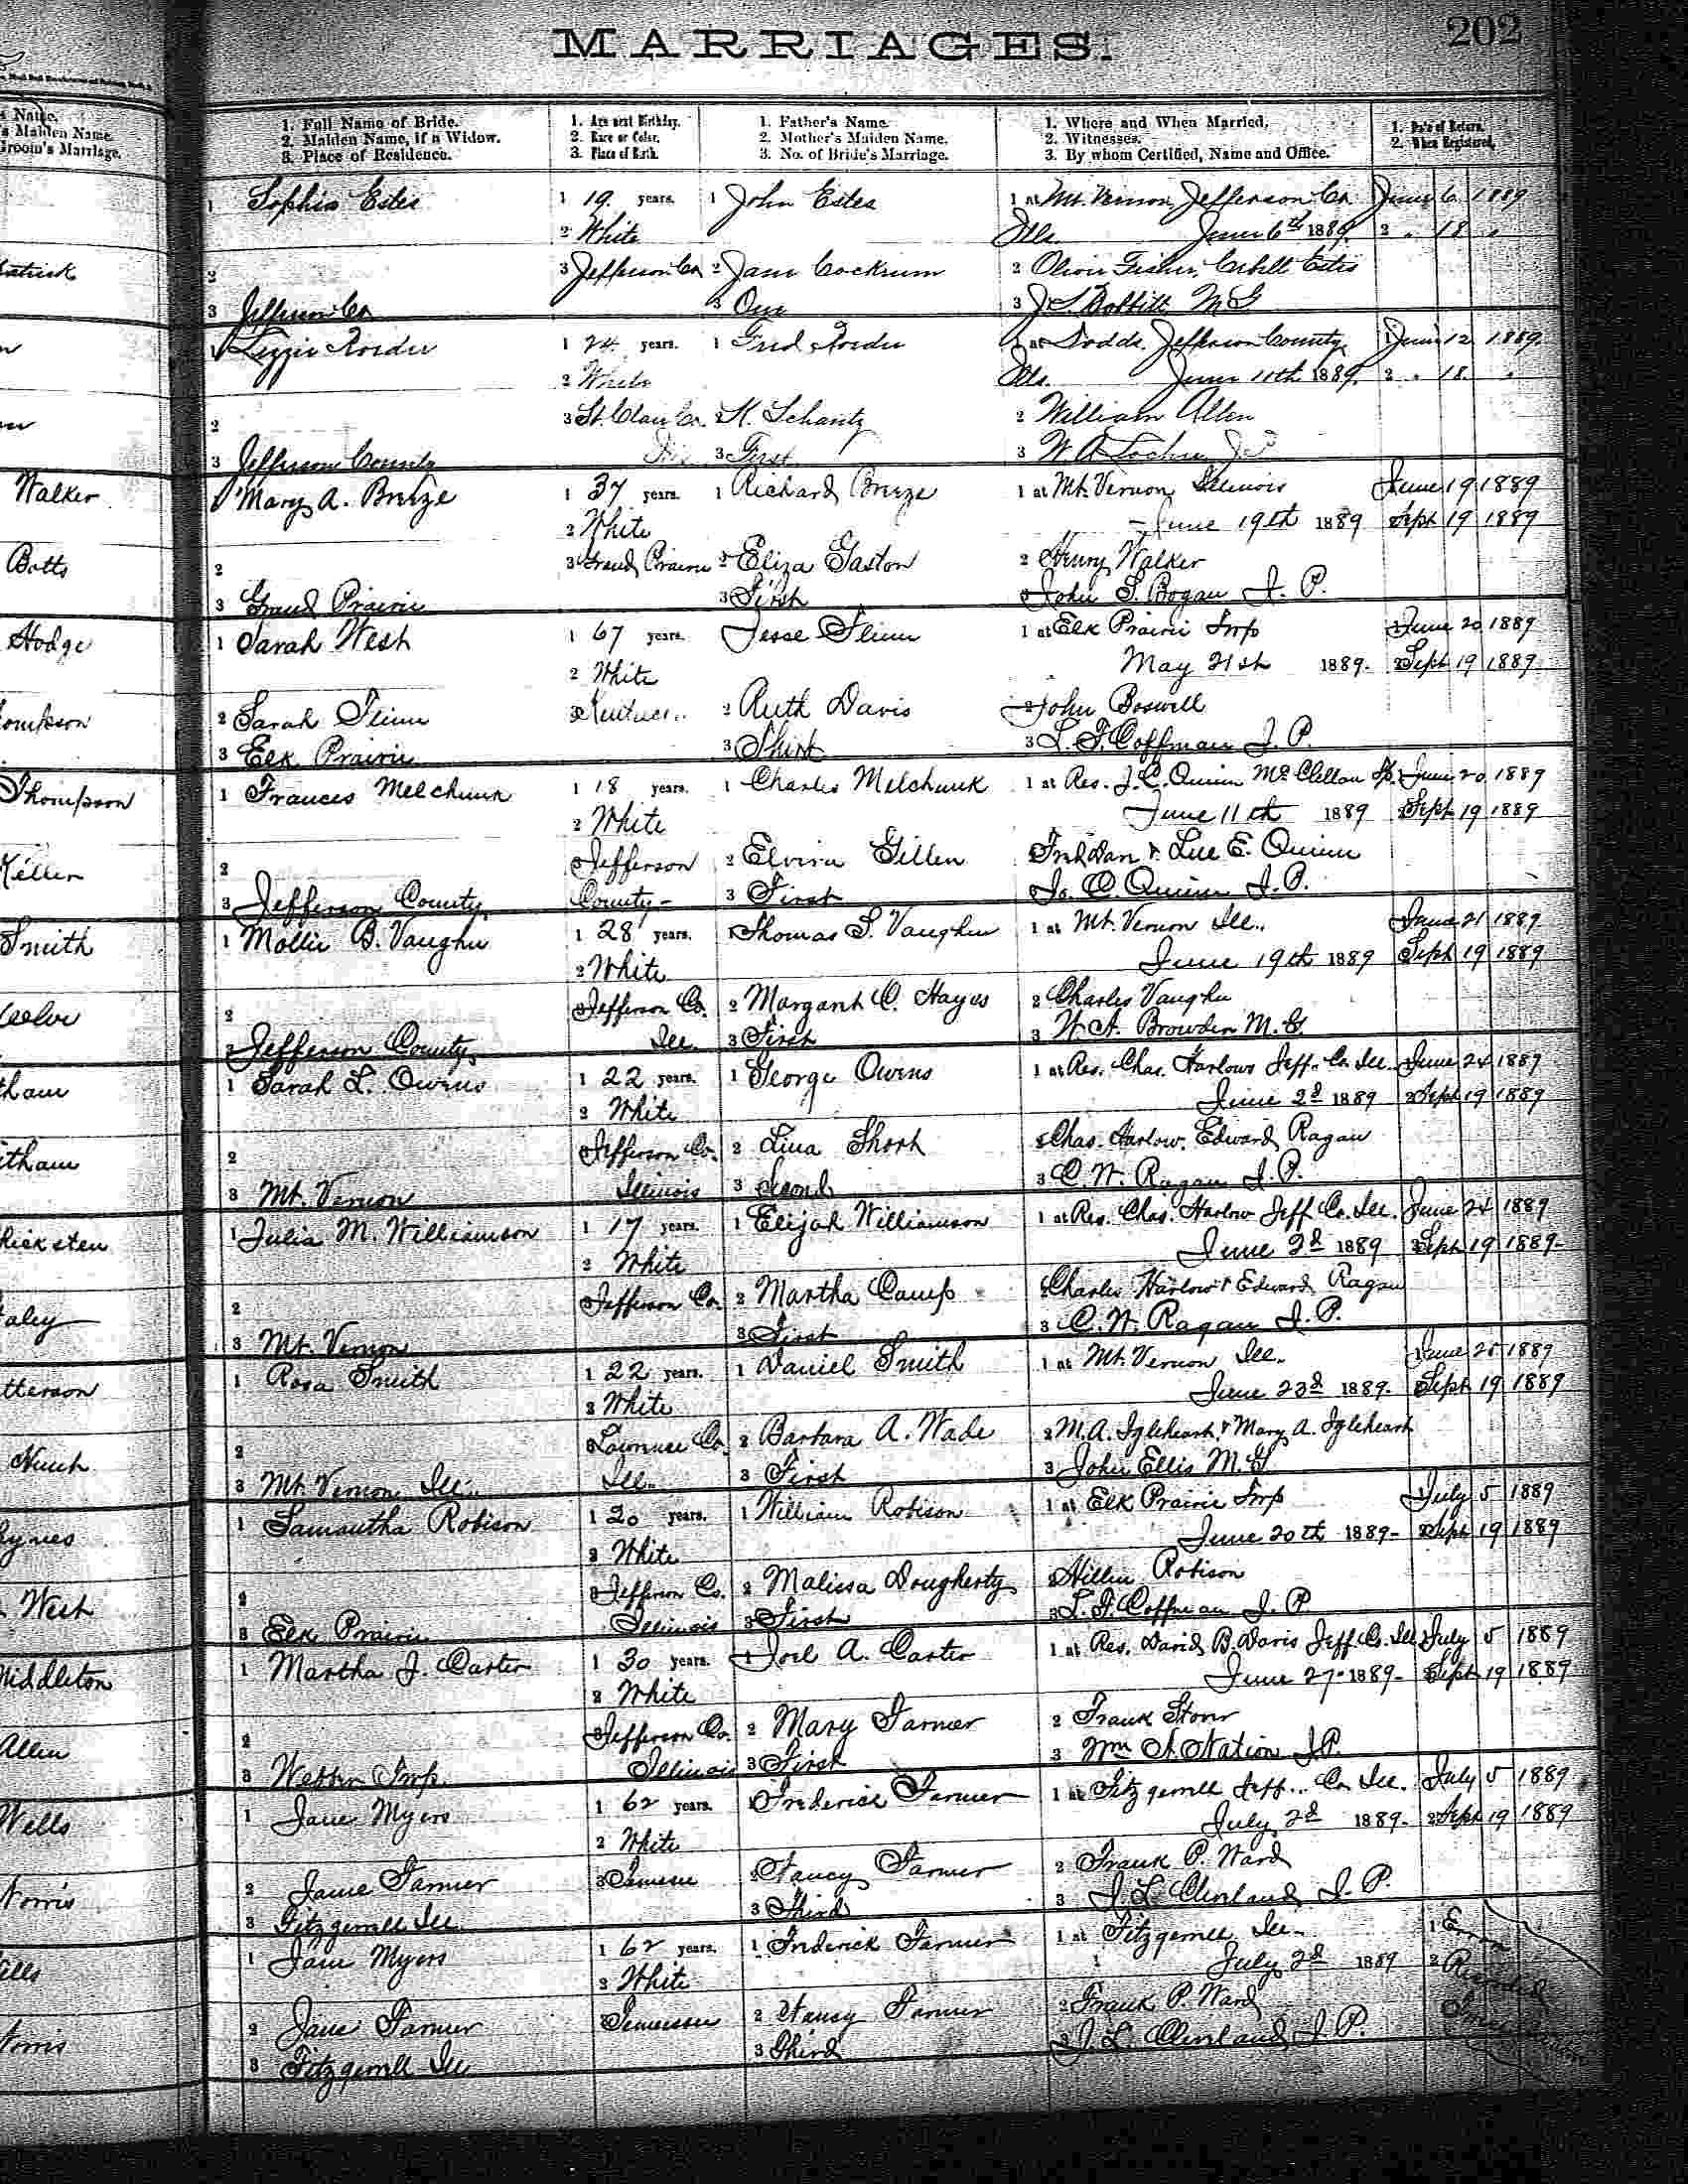 MARRIAGES.
202
s Name.
's Maiden Name.
Groom's Marriage.
1. Full Name of Bride.
2. Maiden Name, if a Widow.
3. Place of Residence.
1. Age next Birthday.
2. Race or Color.
3. Place of Birth.
1. Father's Name.
2. Mother's Maiden Name.
3. No. of Bride's Marriage.
1. Where and When Married,
2. Witnesses.
3. By whom Certified, Name and Office.
1. Date of Return.
2. When Registered.
1 Sophia Estes 1 19 years. 1 John Estes 1 at Mt. Vernon, Jefferson Co. June 6 1889
2 White Ills. June 6th 1889. 2 " 18 "
2 3 Jefferson Co 2 Jane Cockrum 2 Oliver Fisher, Estes
3 Jefferson Co 3 One 3 J. S. Bobbitt M G
1 Lizzie 1 24 years. 1 Fred 1 at Dodds, Jefferson County 1 June 12 1889.
2 White Ills. June 11th 1889. 2 " 18. "
2 3 St. Clair Co. 2 K. Schantz 2 William Allen
3 Jefferson County 3 First 3 W A
Walker
1 Mary A. Breeze 1 37 years. 1 Richard Breeze 1 at Mt. Vernon, Illinois June 19 1889
2 White June 19th 1889 2 Sept 19 1889
Botts
2 3 Grand Prairie 2 Eliza Gaston 2 Henry Walker
3 Grand Prairie 3 First John S. Bogan J. P.
Hodge
1 Sarah West 1 67 years. Jesse Flinn 1 at Elk Prairie Twp June 20 1889
2 White May 21st 1889. 2 Sept 19 1889
ompson
2 Sarah Flinn 3 2 Ruth Davis 2 John Boswell
3 Elk Prairie 3 Third 3 L. F. Coffman J. P.
Thompson
1 Frances Melchunk 1 18 years. 1 Charles Melchunk 1 at Res. J. C. Quinn McClellan Tp. June 20 1889
2 White June 11th 1889 2 Sept 19 1889
Keller
2 Jefferson 2 Elvira Gillen & Lee E. Quinn
3 Jefferson County County - 3 First Jo. C. Quinn J. P.
Smith
1 Mollie B. Vaughn 1 28 years. Thomas S. Vaughn 1 at Mt. Vernon Ill. June 21 1889
2 White June 19th 1889 Sept 19 1889
2 Jefferson Co. 2 Margaret C. Hayes 2 Charles Vaughn
3 Jefferson County Ill. 3 First 3 Browder M. G.
ham
1 Sarah L. Owens 1 22 years. 1 George Owens 1 at Res. Chas. Harlows Jeff. Co. Ill. June 24 1889
2 White June 2d 1889 2 Sept 19 1889
tham
2 Jefferson Co. 2 Lina Short 2 Chas. Harlow, Edward Ragan
3 Mt. Vernon Illinois 3 Second 3 C. W. Ragan J. P.
1 Julia M. Williamson 1 17 years. 1 Elijah Williamson 1 at Res. Chas. Harlow Jeff Co. Ill. June 24 1889
2 White June 2d 1889 2 Sept 19 1889-
aley
2 Jefferson Co. 2 Martha Camp 2 Charles Harlow & Edward Ragan
3 Mt. Vernon 3 First 3 C. W. Ragan J. P.
tterson
1 Rosa Smith 1 22 years. 1 Daniel Smith 1 at Mt. Vernon Ill. June 25 1889
2 White June 23d 1889. 2 Sept 19 1889
2 Lawrence Co. 2 Barbara A. Wade 2 M. A. Igleheart & Mary A. Igleheart
3 Mt. Vernon Ill. Ill. 3 First 3 John Ellis M. G.
1 Samantha Robison 1 20 years. 1 William Robison 1 at Elk Prairie Twp July 5 1889
2 White June 20th 1889- 2 Sept 19 1889
West
2 Jefferson Co. 2 Malissa Dougherty Robison
3 Elk Prairie Illinois 3 First 3 L. F. Coffman J. P.
Middleton
1 Martha J. Carter 1 30 years. 1 Joel A. Carter 1 at Res. David B. Davis Jeff. Co. Ill July 5 1889
2 White June 27 - 1889- Sept 19 1889
Allen
2 Jefferson Co. 2 Mary Farmer 2 Frank Stoner
3 Webber Twp. Illinois 3 First 3 Wm A. Nation J. P.
Wells
1 Jane Myers 1 62 years. Frederick Farmer 1 at Fitzgerrell Jeff. Co. Ill. July 5 1889
2 White July 2d 1889- 2 Sept 19 1889
Norris
2 Jane Farmer 3 2 Nancy Farmer 2 Frank P. Ward
3 Fitzgerrell Ill 3 Third 3 J. L. Cleveland J. P.
ells
1 Jane Myers 1 62 years. 1 Frederick Farmer 1 at Fitzgerrell Ill. 1 Error
2 White July 2d 1889 2 Recorded
orris
2 Jane Farmer Tennessee 2 Nancy Farmer 2 Frank P. Ward
3 Fitzgerrell Ill 3 Third 3 J. L. Cleveland J. P.